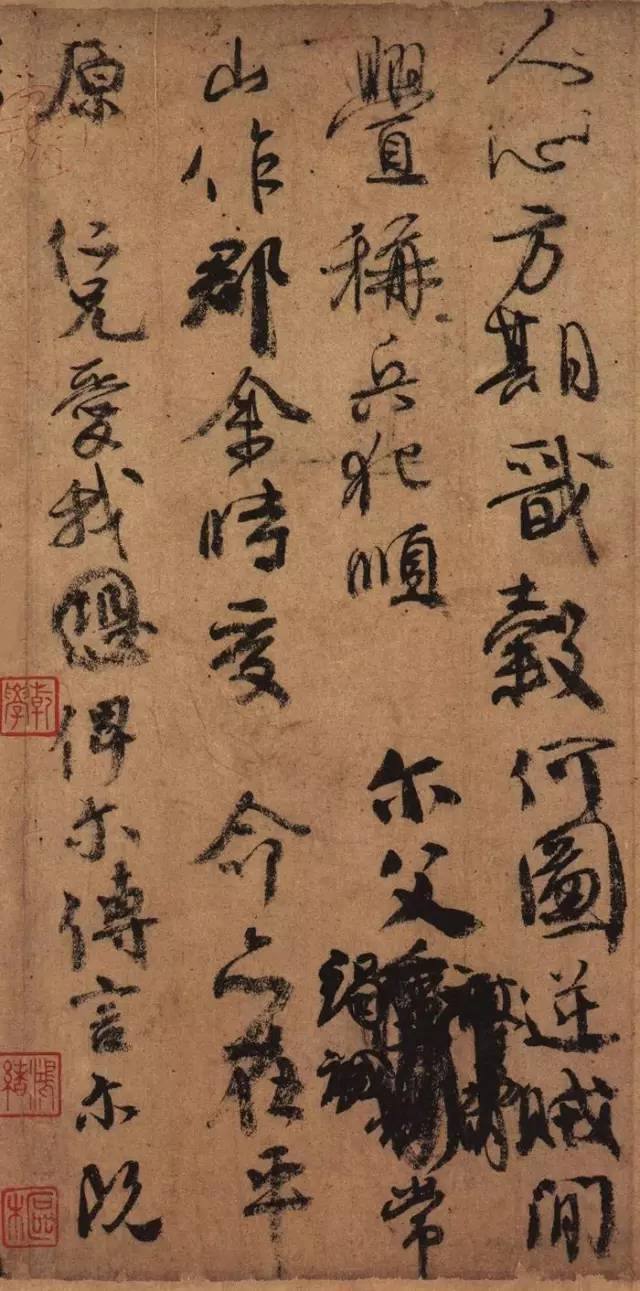 人心方期戩穀何圖逆賊間
釁稱兵犯順 尔父竭誠常
山作郡余時受 命亦在平
原 仁兄愛我俾尔傳言尔既
乾學
鴻緒